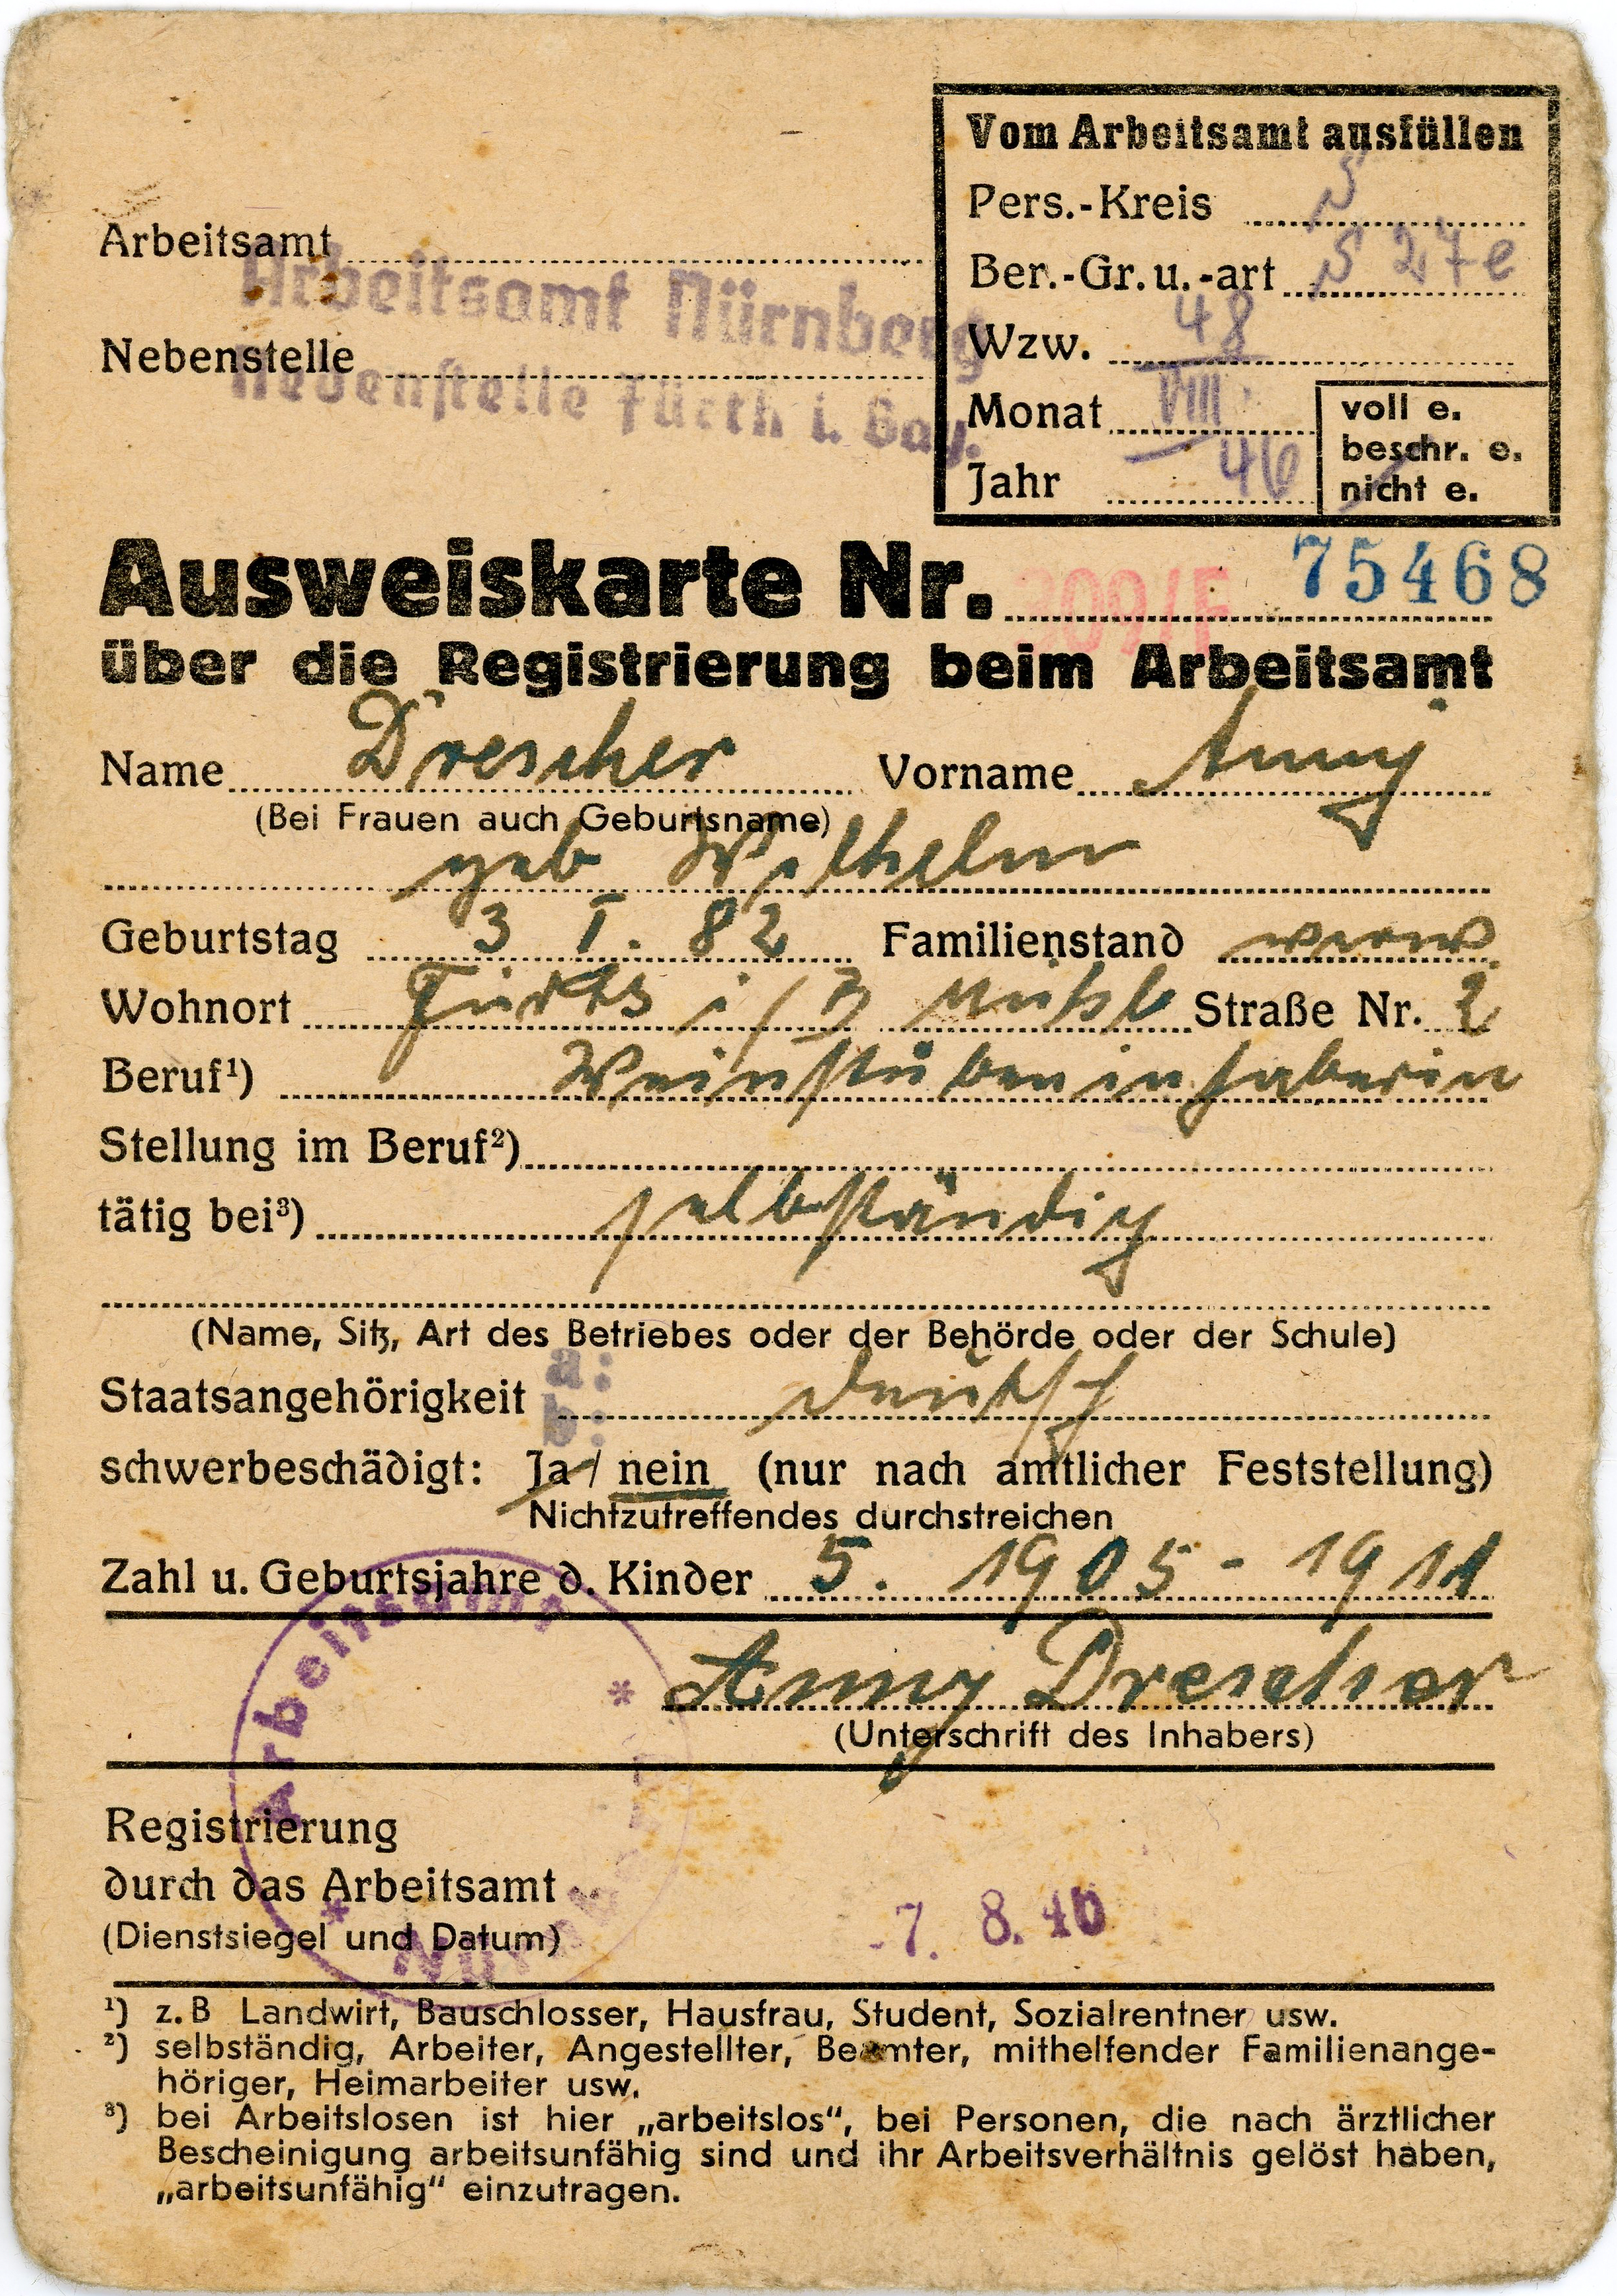 Vom Arbeitsamt ausfüllen
Pers.-Kreis S
Ber.-Gr. u. -art S 27e
Wzw. 48
Monat VIII
Jahr 46
voll e.
beschr. e.
nicht e.
Arbeitsamt
Arbeitsamt Nürnberg
Nebenstelle
Nebenstelle Fürth i. Bay.
Ausweiskarte Nr. 309/F 75468
über die Registrierung beim Arbeitsamt
Name Drescher Vorname Anny
(Bei Frauen auch Geburtsname)
geb Wilhelm
Geburtstag 3 I. 82 Familienstand verw
Wohnort Fürth i/B Mühl Straße Nr. 2
Beruf¹) Weinstubeninhaberin
Stellung im Beruf²)
tätig bei³) selbständig
(Name, Sitz, Art des Betriebes oder der Behörde oder der Schule)
Staatsangehörigkeit a: b: deutsch
schwerbeschädigt: Ja / nein (nur nach amtlicher Feststellung)
Nichtzutreffendes durchstreichen
Zahl u. Geburtsjahre d. Kinder 5. 1905 - 1911
Anny Drescher
(Unterschrift des Inhabers)
Arbeitsamt * Nürnberg *
Registrierung
durch das Arbeitsamt
(Dienstsiegel und Datum)
-7. 8. 46
¹) z. B Landwirt, Bauschlosser, Hausfrau, Student, Sozialrentner usw.
²) selbständig, Arbeiter, Angestellter, Beamter, mithelfender Familienange-
höriger, Heimarbeiter usw.
³) bei Arbeitslosen ist hier „arbeitslos“, bei Personen, die nach ärztlicher
Bescheinigung arbeitsunfähig sind und ihr Arbeitsverhältnis gelöst haben,
„arbeitsunfähig“ einzutragen.